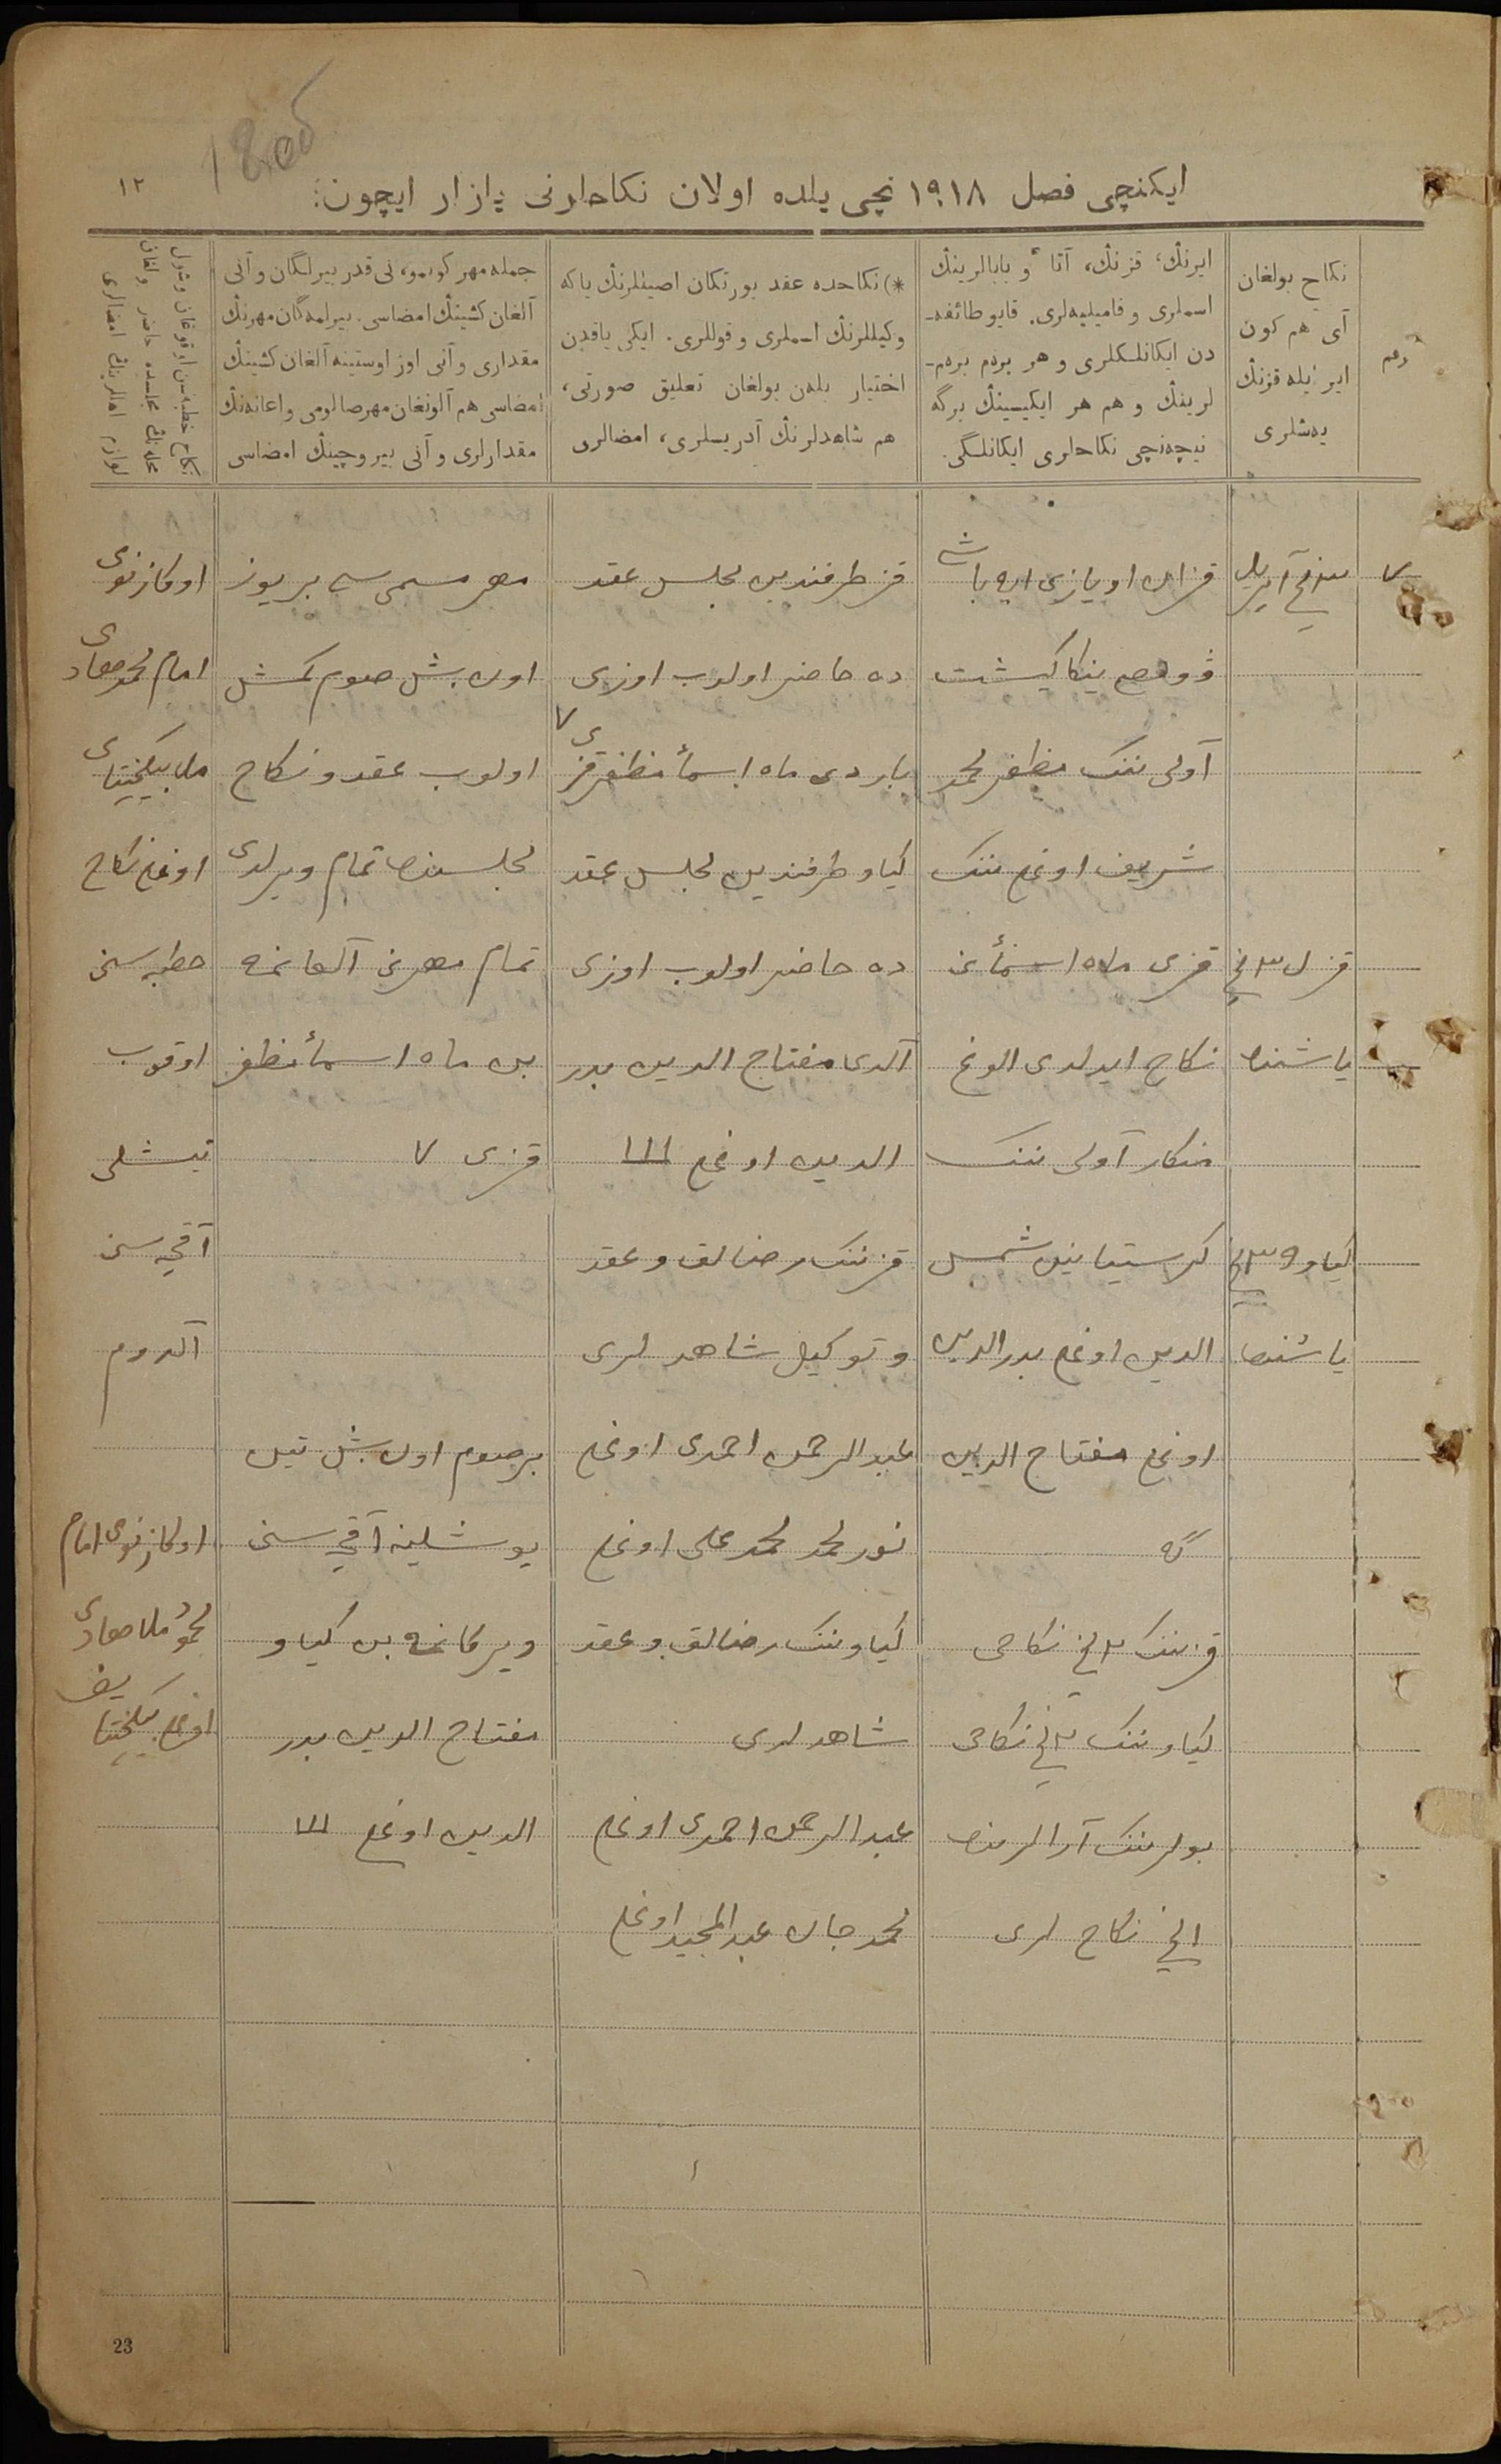 18об
١٢
ایکنچی فصل ١٩١٨ نچی یلده اولان نکاحلرنی یازار ایچون:
رقم
نکاح بولغان
آی هم کون
ایر ایله قزنڭ
یەشلری
ایرنڭ، قزنڭ، آتا و بابالرینڭ
اسملری و فامیلیەلری. قایو طائفه‌
دن ایکانلکلری و هر برەم برەم
لرینڭ و هم هر ایکیسینڭ برگه
نیچەنچی نکاحلری ایکانلگی.
*) نکاحده عقد یورتکان اصیللرنڭ یاکه
وکیللرنڭ اسملری و قوللری. ایکی یاقدین
اختیار بلەن بولغان تعلیق صورتی،
هم شاهدلرنڭ آدریسلری، امضالری
جمله مهر کوبمو، نی قدر بیرلگان و آنی
آلغان کشینڭ امضاسی. بیرلمەگان مهرنڭ
مقداری و آنی اوز اوستینه آلغان کشینڭ
امضاسی هم آلونغان مهر صالومی و اعانەنڭ
مقدارلری و آنی بیروچینڭ امضاسی
نکاح خطبەسن اوقوغان وشول
مجلسده حاضر بولغان
امضالری
٧
٣ نچی آپریل
قز ٣ نچی
یاشنده
کیاو ٣٩ نچی
یاشنده
قزان اویازی ایه باشی
ینکا کیشت
آولی ننک مظفر محمد
شریف اوغلی ننک
قزی ماه اسمأنی
نکاح ایلدی الوغ
منکار آولی ننک
کرستیانین شمس
الدین اوغلی بدرالدین
اوغلی مفتاح الدین
گه
قز ننک ٢ نچی نکاحی
کیاو ننک ٢ نچی نکاحی
بولرننک آرالرنده
نچی نکاح لری
قز طرفندین مجلس عقد
ده حاضر اولوب اوزی
باردی ماه اسمأ مظفر قزی ٧
کیاو طرفندین مجلس عقد
ده حاضر اولوب اوزی
آلدی مفتاح الدین بدر
الدین اوغلی
قز ننک رضالق و عقد
و توکیل شاهد لری
عبدالرحمن احمدی اوغلی
نور محمد محمد علی اوغلی
کیاو ننک رضالق و عقد
شاهد لری
عبدالرحمن احمدی اوغلی
محمد جان عبدالمجید اوغلی
مهر مسمی سی بر یوز
اون بش صوم کمش
اولوب عقد و نکاح
مجلسنده تمام ویرلدی
تمام مهرنی آلغانمه
بن ماه اسمأ مظفر
قزی ٧
بر صوم اون بش تین
یوشلینه آقچه سنی
ویرکانمه بن کیاو
مفتاح الدین بدر
الدین اوغلی
اوکازنوی
امام محمد صادی
ملا بیکچنتای
اوغلی نکاح
خطبه سنی
اوقوب
تیشلی
آقچه سنی
آلدوم
اوکازنوی امام
ملا صادی
اوغلی
23